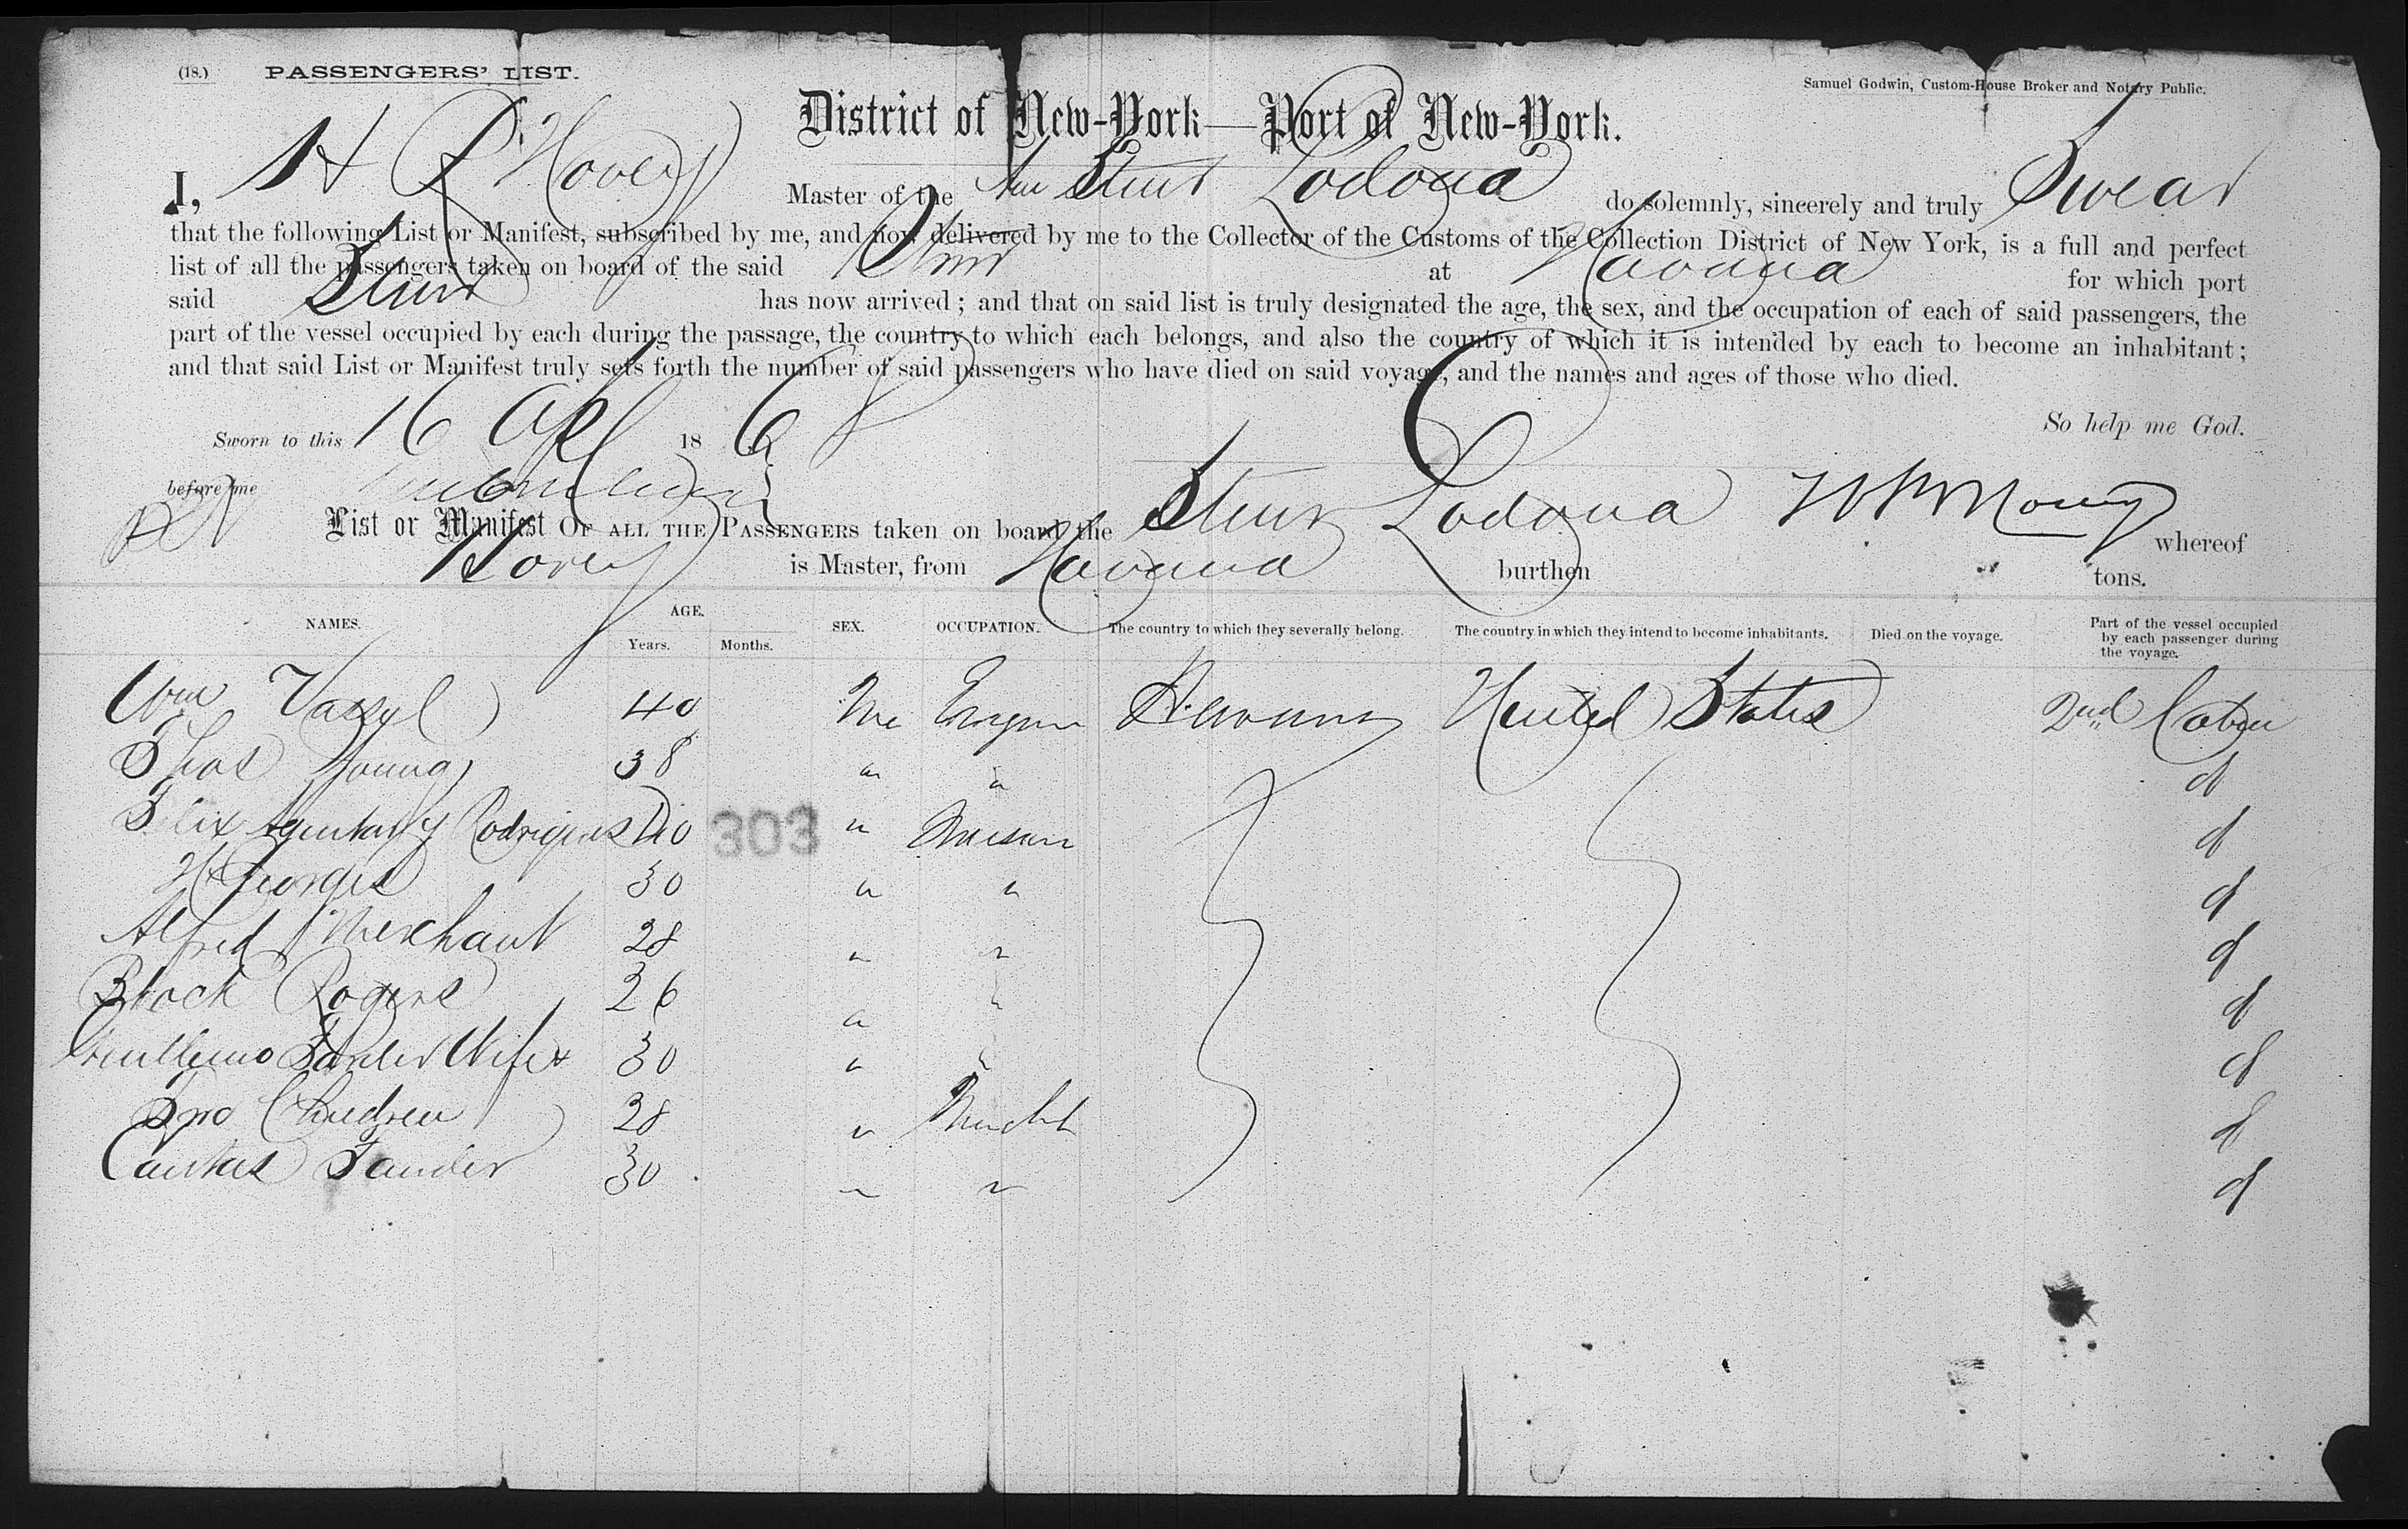 (18.) PASSENGERS' LIST.
Samuel Godwin, Custom-House Broker and Notary Public.
District of New-York—Port of New-York.
I, Hovey Master of the Am Stmr Lodona do solemnly, sincerely and truly Swear
that the following List or Manifest, subscribed by me, and now delivered by me to the Collector of the Customs of the Collection District of New York, is a full and perfect
list of all the passengers taken on board of the said Stmr at Havana for which port
said Stmr has now arrived; and that on said list is truly designated the age, the sex, and the occupation of each of said passengers, the
part of the vessel occupied by each during the passage, the country to which each belongs, and also the country of which it is intended by each to become an inhabitant;
and that said List or Manifest truly sets forth the number of said passengers who have died on said voyage, and the names and ages of those who died.
So help me God.
Sworn to this 16 Apl 1868
before me
List or Manifest OF ALL THE PASSENGERS taken on board the Stmr Lodona whereof
Hovey is Master, from Havana burthen tons.
NAMES. AGE. Years. Months. SEX. OCCUPATION. The country to which they severally belong. The country in which they intend to become inhabitants. Died on the voyage. Part of the vessel occupied by each passenger during the voyage.
Wm 40 United States 2nd Cabin
Thos Young 38 " " d
Rodrigues 40 303 " d
30 " " d
Alfred Merchant 28 " " d
Rogers 26 " " d
Wife & 30 " " d
Two Children 28 " d
30 " " d